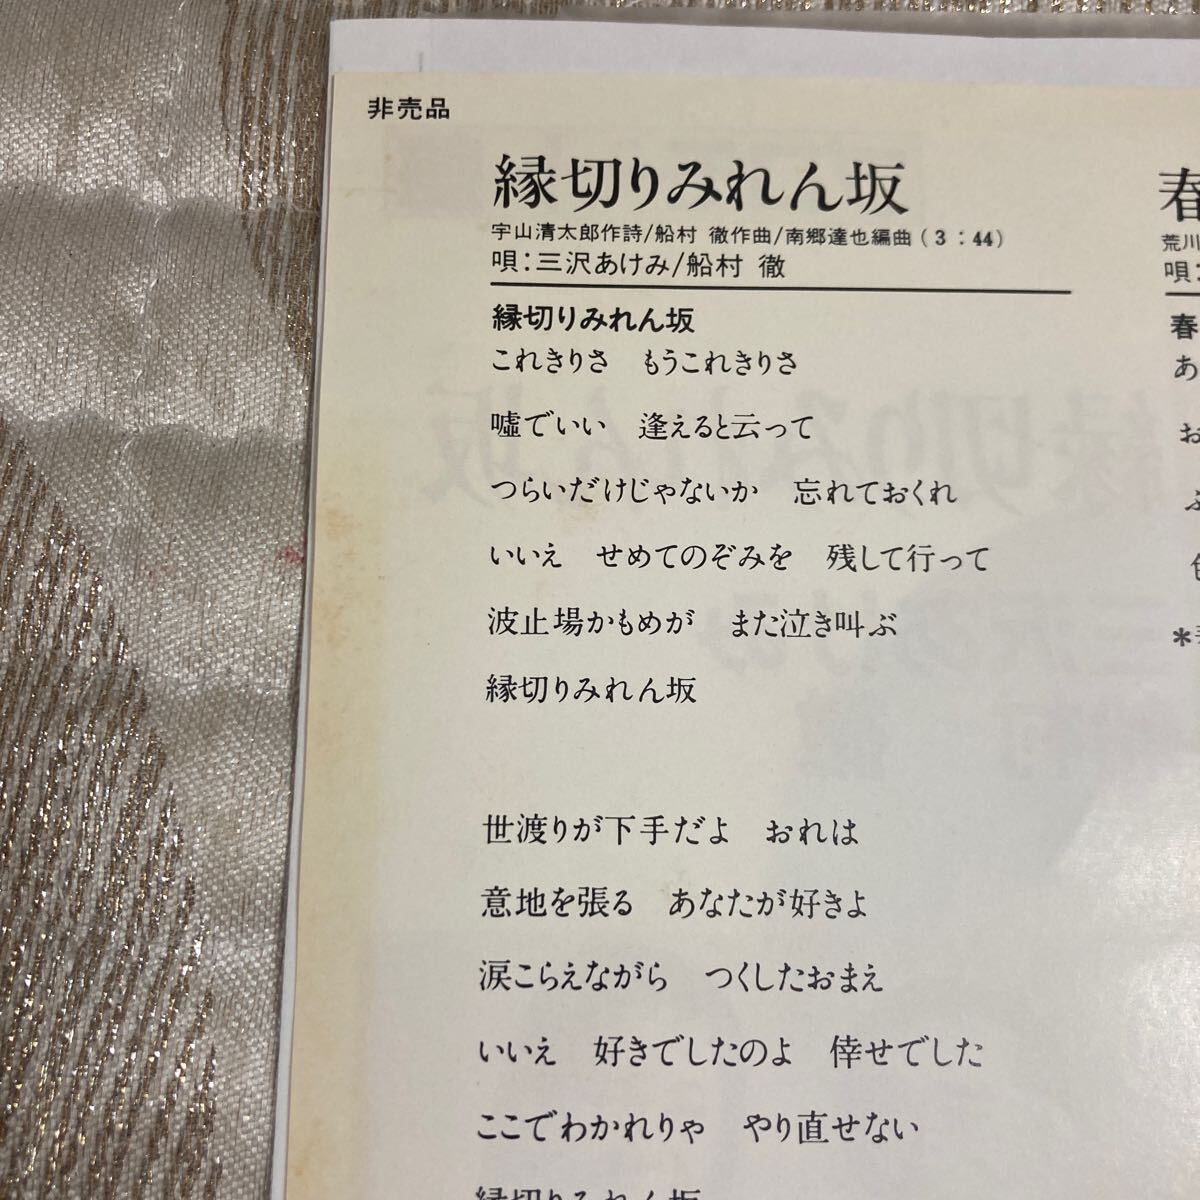 非売品
縁切りみれん坂
宇山清太郎作詩/船村 徹作曲/南郷達也編曲(3:44)
唄:三沢あけみ/船村 徹
縁切りみれん坂
これきりさ　もうこれきりさ
嘘でいい　逢えると云って
つらいだけじゃないか　忘れておくれ
いいえ　せめてのぞみを　残して行って
波止場かもめが　また泣き叫ぶ
縁切りみれん坂
世渡りが下手だよ　おれは
意地を張る　あなたが好きよ
涙こらえながら　つくしたおまえ
いいえ　好きでしたのよ　倖せでした
ここでわかれりゃ　やり直せない
縁切りみれん坂
春
荒川
唄:
春
あ
お
ふ